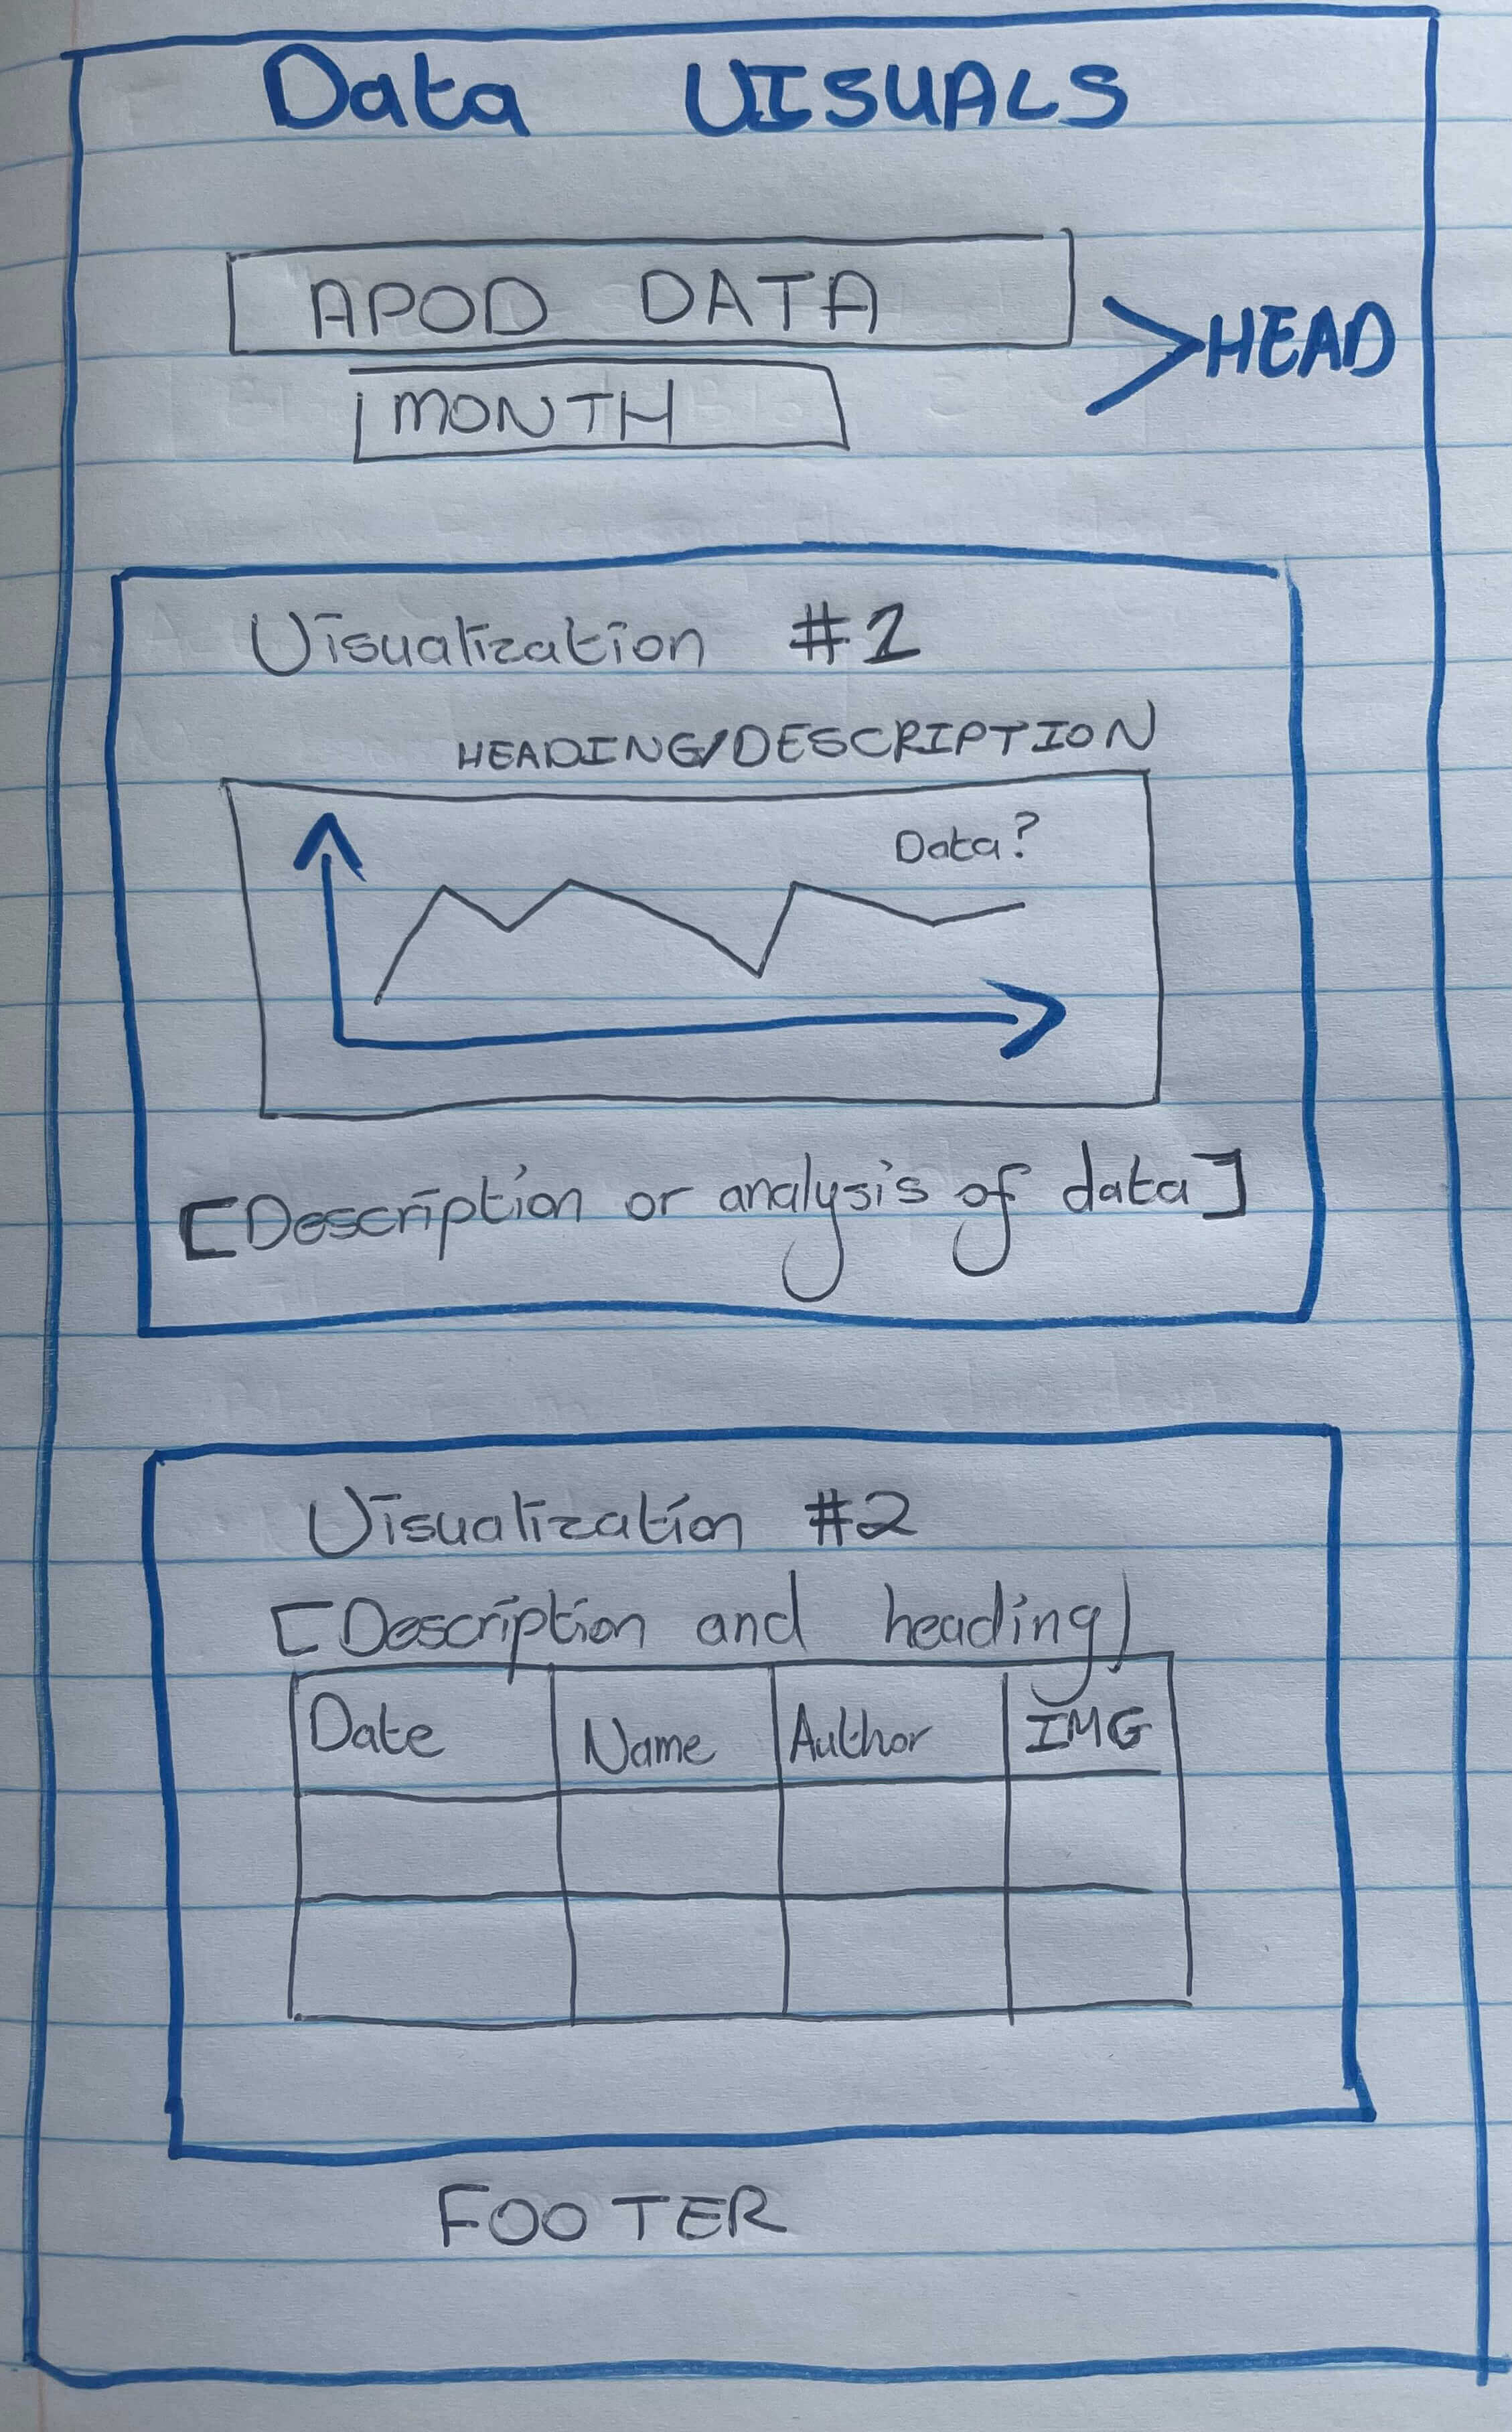 Data VISUALS
APOD DATA
MONTH
>HEAD
Visualization #1
HEADING/DESCRIPTION
Data?
[Description or analysis of data]
Visualization #2
[Description and heading]
Date Name Author IMG
FOOTER